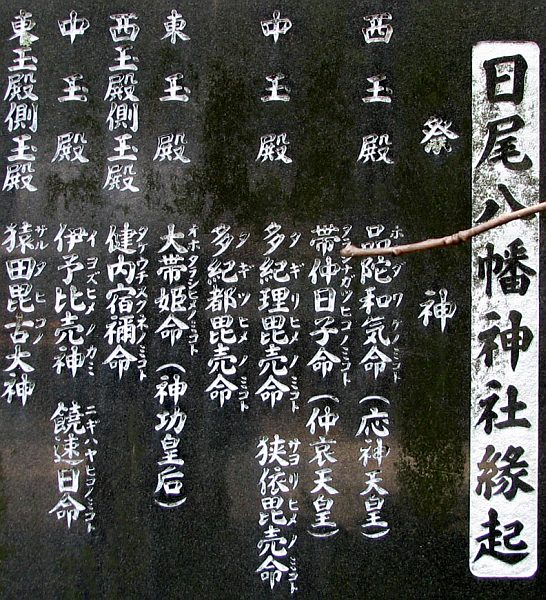 日尾八幡神社縁起
祭神
西玉殿 品陀和気命(応神天皇)
ホダワケノミコト
帯仲日子命(仲哀天皇)
タラシナカツヒコノミコト
中玉殿 多紀理毘売命 狭依毘売命
タギリヒメノミコト サヨリヒメノミコト
多紀都毘売命
タギツヒメノミコト
東玉殿 大帯姫命(神功皇后)
オホタラシヒメノミコト
西玉殿側玉殿 健内宿禰命
タケウチスクネノミコト
中玉殿 伊予比売神 饒速日命
イヨズヒメノカミ ニギハヤヒコノミコト
東玉殿側玉殿 猿田毘古大神
サルタヒコノ